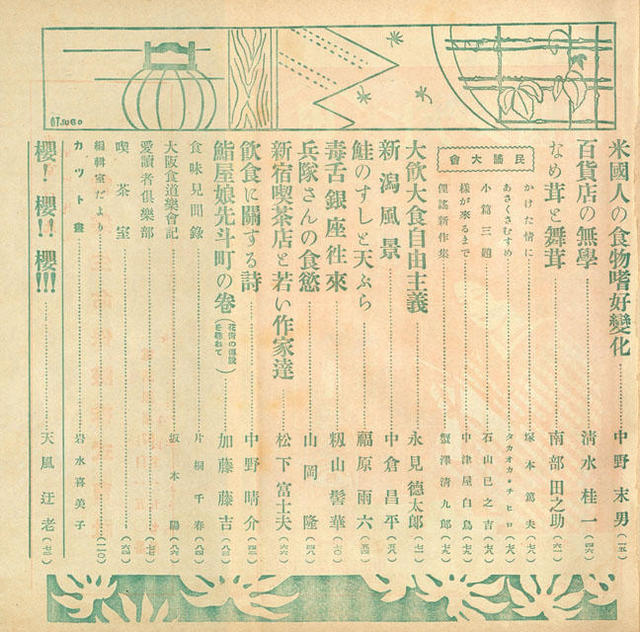 米國人の食物嗜好變化 中野末男(一五)
百貨店の無學 清水桂一(四六)
なめ茸と舞茸 南部田之助(六一)
民謠大會
かけた情に 塚本篤夫(七六)
あさくさむすめ タカオカ・チヒロ(七六)
小篇三題 石山巳之吉(七六)
様が來るまで 中津屋白鳥(七九)
俚謠新作集 蟹澤清九郎(七九)
大飲大食自由主義 永見德太郎(七一)
新潟風景 中倉昌平(五八)
鮭のすしと天ぷら 福原雨六(五四)
毒舌銀座往來 籾山髻華(五〇)
兵隊さんの食慾 山岡隆(四八)
新宿喫茶店と若い作家達 松下富士夫(六六)
飲食に關する詩 中野晴介(四二)
鮨屋娘先斗町の卷(花街の傳説を尋ねて) 加藤藤吉(八三)
食味見聞錄 片桐千春(八四)
大阪食道樂會記 坂本陽(八六)
愛讀者俱樂部(七七)
喫茶室(六四)
編輯室だより(一一〇)
カット畫 岩水喜美子
櫻! 櫻!! 櫻!!! 天風迂老(七三)